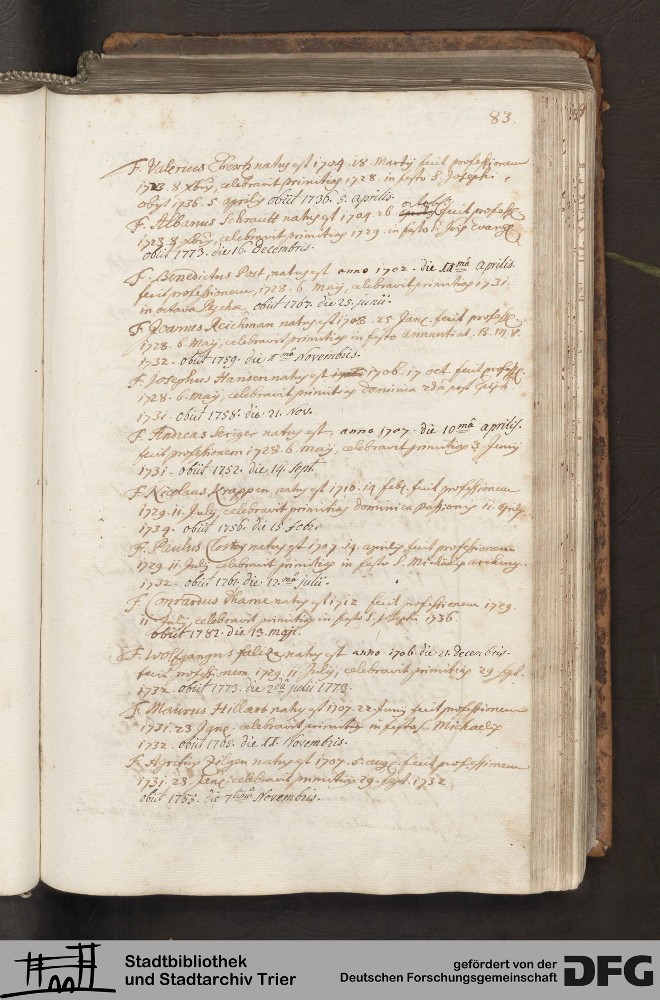 83.
F. Valerius natus est 1704. 18. Martij fecit professionem
1723. 8. xbris, celebravit primitias 1728. in festo S. Josephi
obijt 1736. 5. aprilis obiit 1736. 5. aprilis.
F. Albanus Schrautt natus est 1704. 26. octobris fecit profess.
1723. 8. xbris, celebravit primitias 1729. in festo S. Jois Evang.
obiit 1773. die 16. Decembris.
F. Benedictus Post, natus est anno 1702. die 11mâ Aprilis.
fecit professionem, 1728. 6. maij, celebravit primitias 1731.
in octava Paschae obiit 1767. die 25. junii.
F. Joannes Reichman natus est 1708. 25. fecit profess.
1728. 6. Maij, celebravit primitias in festo Annuntiat. B. M. V.
1732. obiit 1759. die 1mâ Novembris.
F. Josephus Hansen natus est 1706. 17. oct. fecit profess.
1728. 6. maij, celebravit primitias dominica 2da post
1731. obiit 1758. die 21. Nov.
F. Andreas Seriger natus est, anno 1707. die 10mâ aprilis.
fecit professionem 1728. 6. maij, celebravit primitias 3. Junij
1731. obiit 1752. die 14. Sept.
F. Nicolaus Krappen, natus est 1710. 14. feb. fecit professionem
1729. 11. Julij celebravit primitias dominica Passionis 11. Aprilis
1734. obiit 1756. die 15. Febr.
F. Paulus natus est 1707. 14. aprilis fecit professionem
1729. 11. Julij celebravit primitias in festo S. Michaelis archang.
1732. obiit 1761. die 12.mâ julii.
F. Conrardus Thame natus est 1712 fecit professionem 1729.
11. Julij, celebravit primitias in festo 1736.
obiit 1782. die 13. maji.
F. Wolfgangus natus est anno 1706. die 21. Decembris.
fecit professionem 1729. 11. Julij, celebravit primitias 29. Sept.
1732. obiit 1773. die 2dâ julii 1773.
F. Maurus Hillart natus est 1707. 22. Junij fecit professionem
1731. 23. celebravit primitias in festo S. Michaelis
1732. obiit 1765. die 11. Novembris.
F. Agritius Zilgen natus est 1707. 5. aug. fecit professionem
1731. 23. celebravit primitias 29. sept. 1732
obiit 1753. die 7timâ Novembris.
Stadtbibliothek
und Stadtarchiv Trier
gefördert von der
Deutschen Forschungsgemeinschaft
DFG